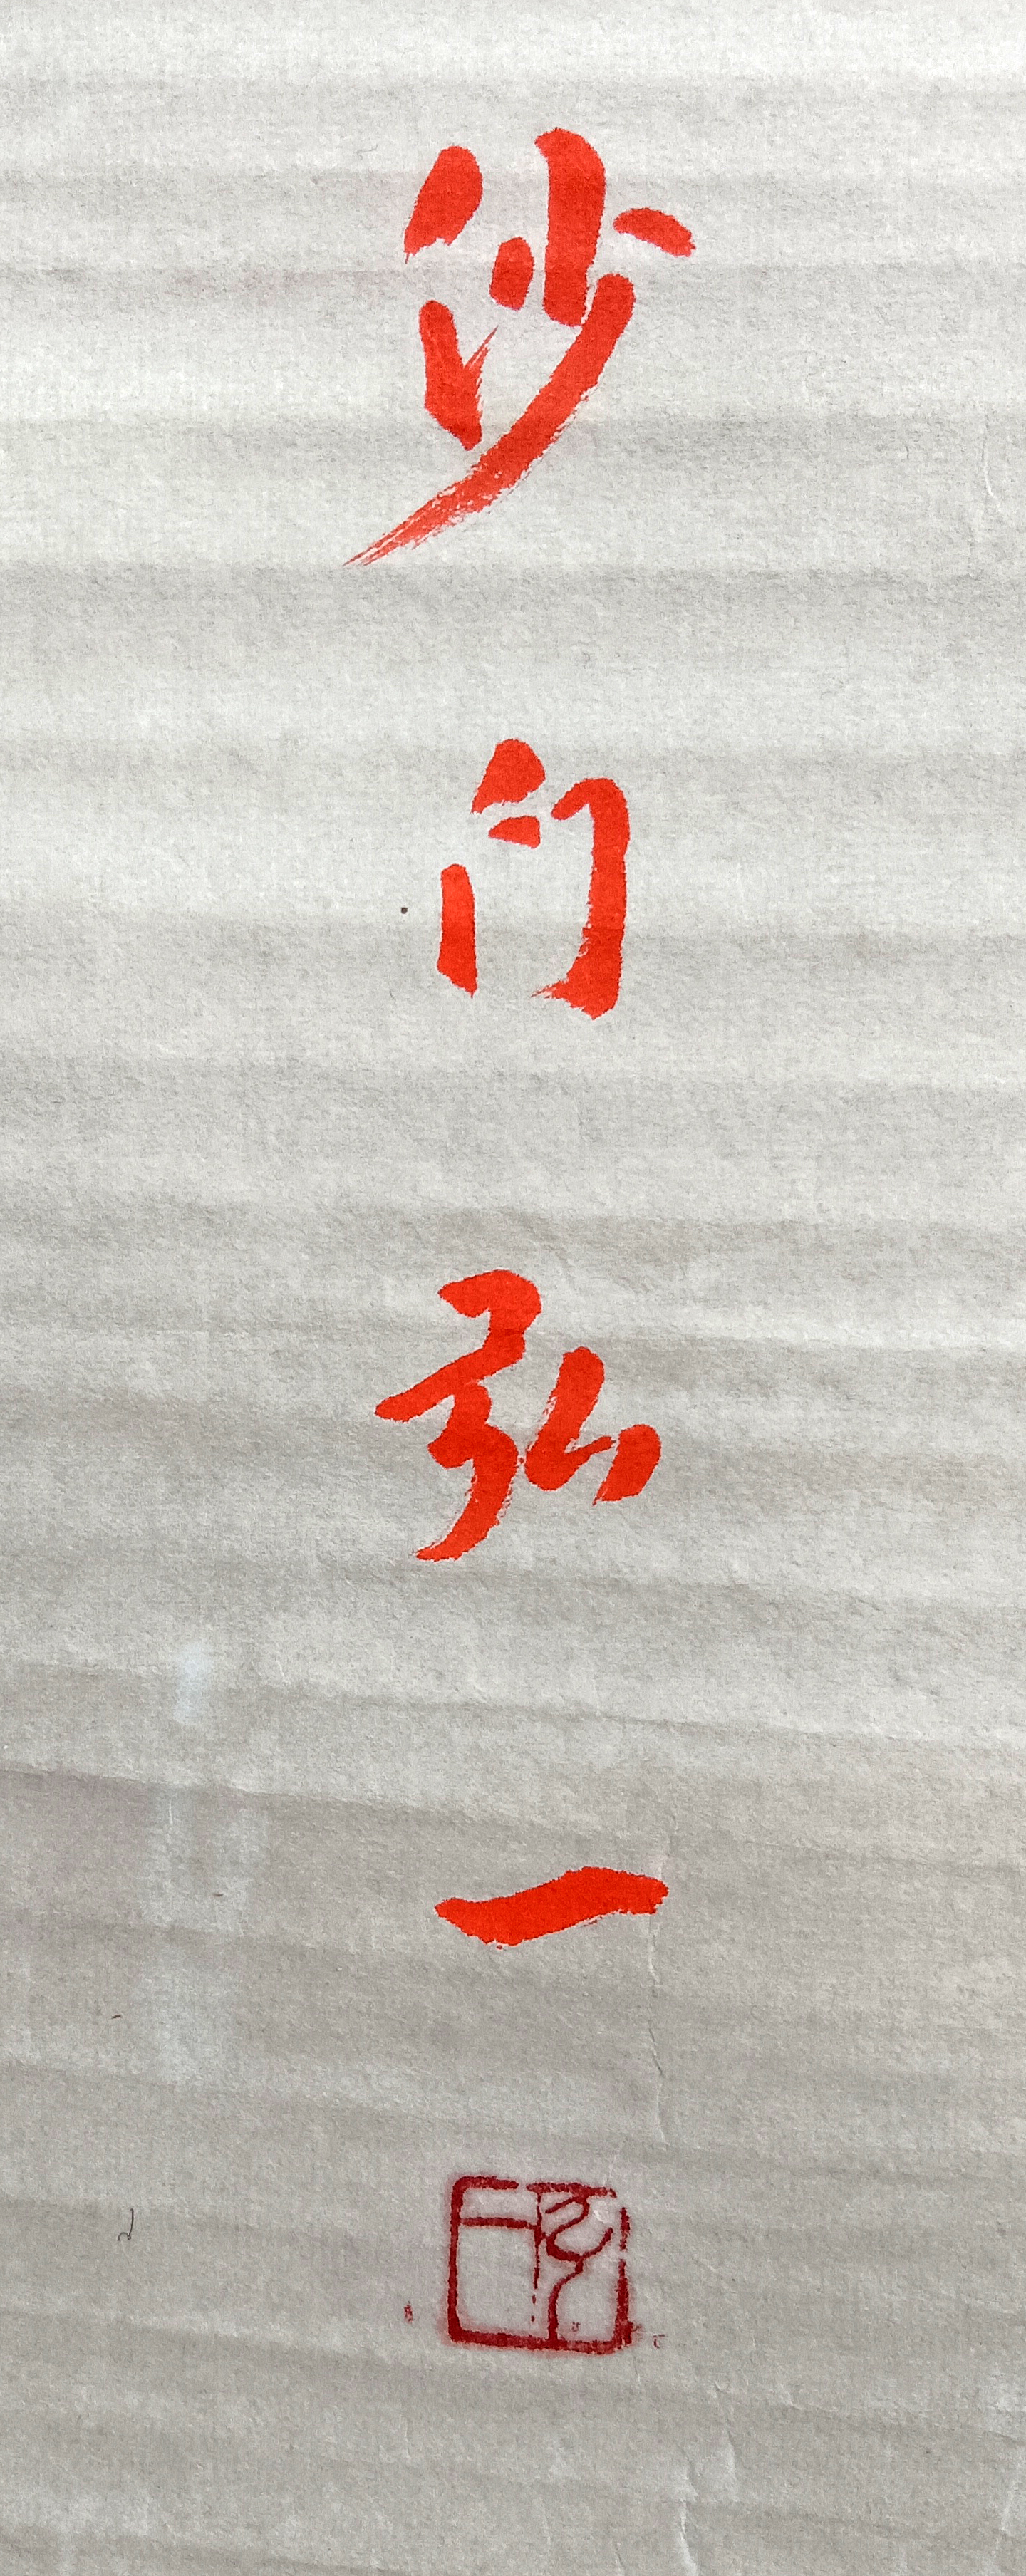 沙门弘一